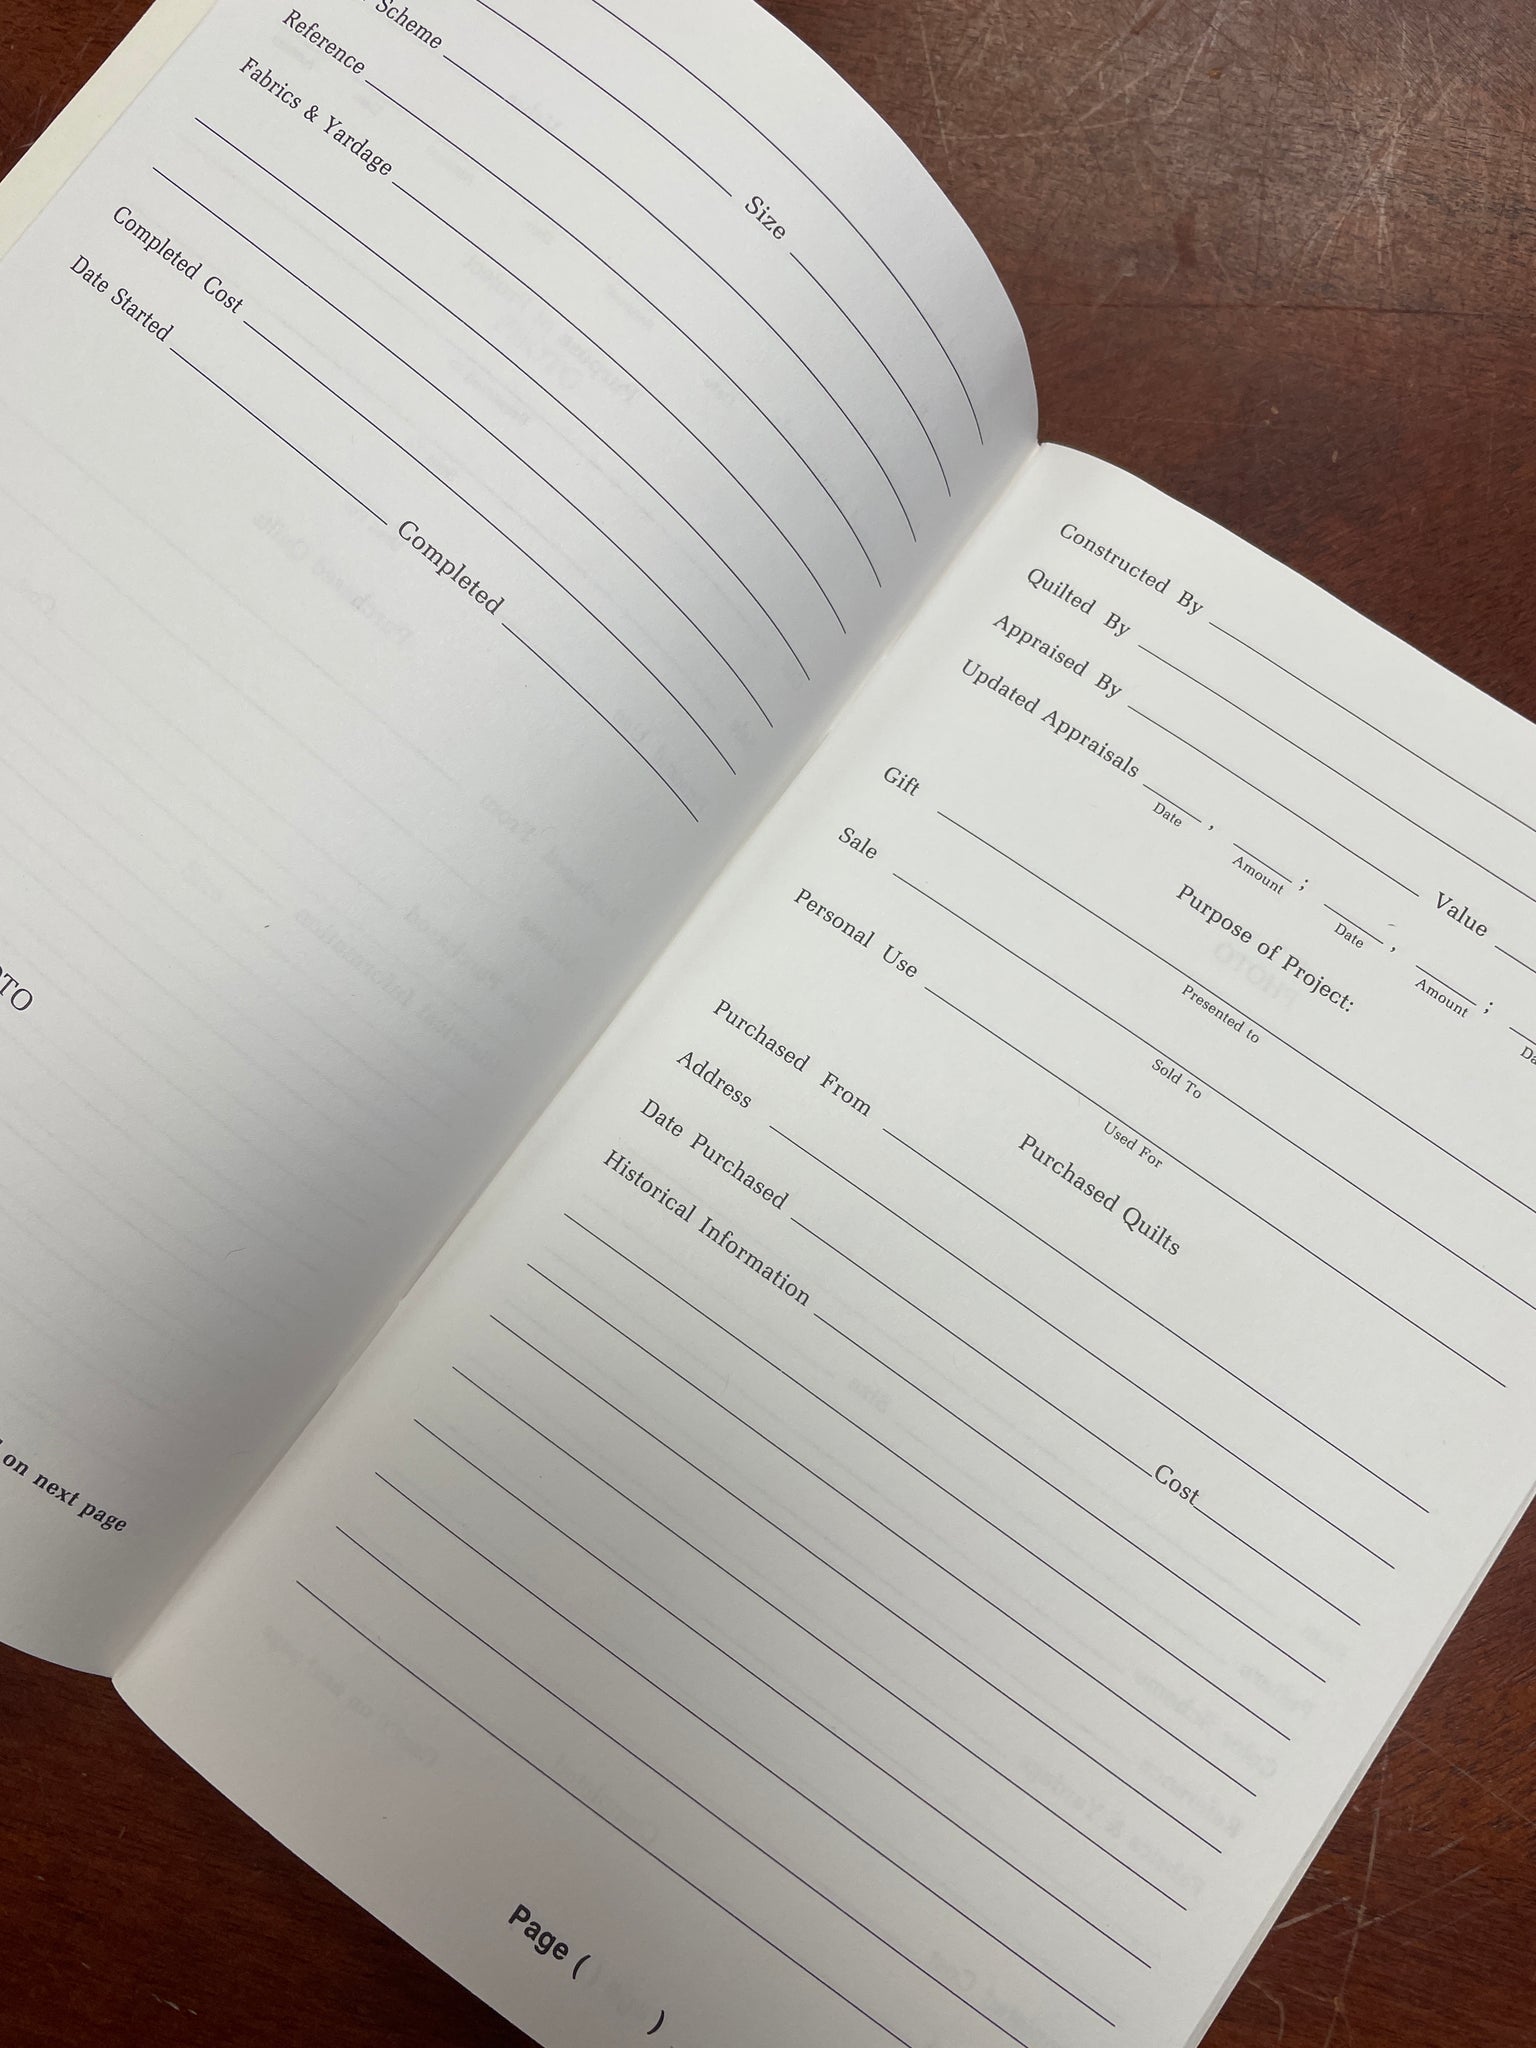 Scheme Size
Reference
Fabrics & Yardage
Completed Cost
Date Started Completed
OTO
on next page
Constructed By
Quilted By
Appraised By Value
Updated Appraisals , ; , ;
Date Amount Date Amount Da
Purpose of Project:
Gift
Presented to
Sale
Sold To
Personal Use
Used For
Purchased Quilts
Purchased From
Address
Date Purchased Cost
Historical Information
Page ( )